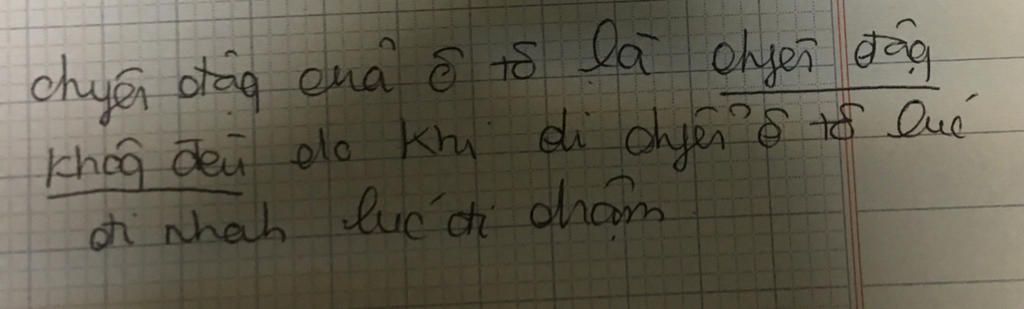 chuyển động của ô tô là chuyển động
không đều do khi di chuyển ô tô lúc
đi nhanh lúc đi chậm